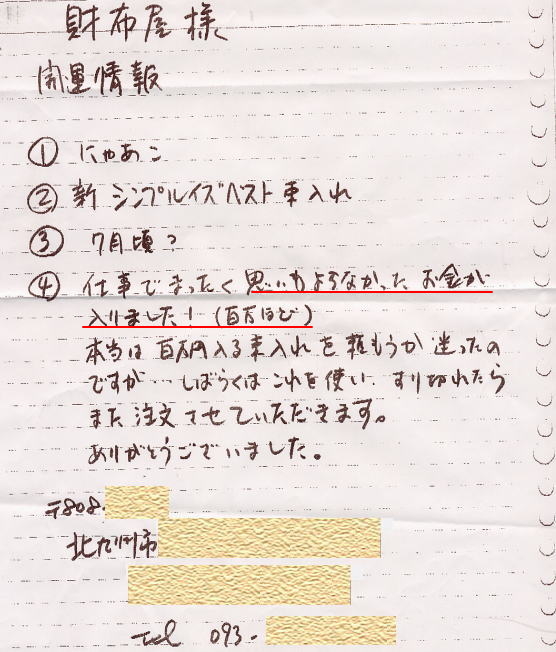 財布屋様
開運情報
① にゃあこ
② 新 シンプルイズベスト 束入れ
③ 7月頃?
④ 仕事でまったく思いもよらなかったお金が
入りました!(百万ほど)
本当は百万円入る束入れを頼もうか迷ったの
ですが…しばらくはこれを使い、すり切れたら
また注文させていただきます。
ありがとうございました。
〒808-
北九州市
Tel 093-